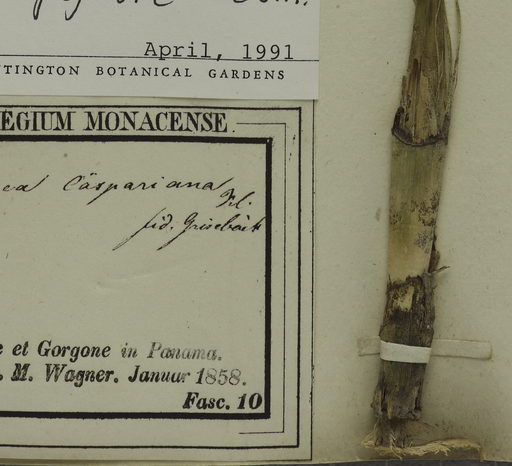 April, 1991
NTINGTON BOTANICAL GARDENS
EGIUM MONACENSE.
ea Caspariana Kl.
fid. Grisebach
e et Gorgone in Panama.
. M. Wagner. Januar 1858.
Fasc. 10